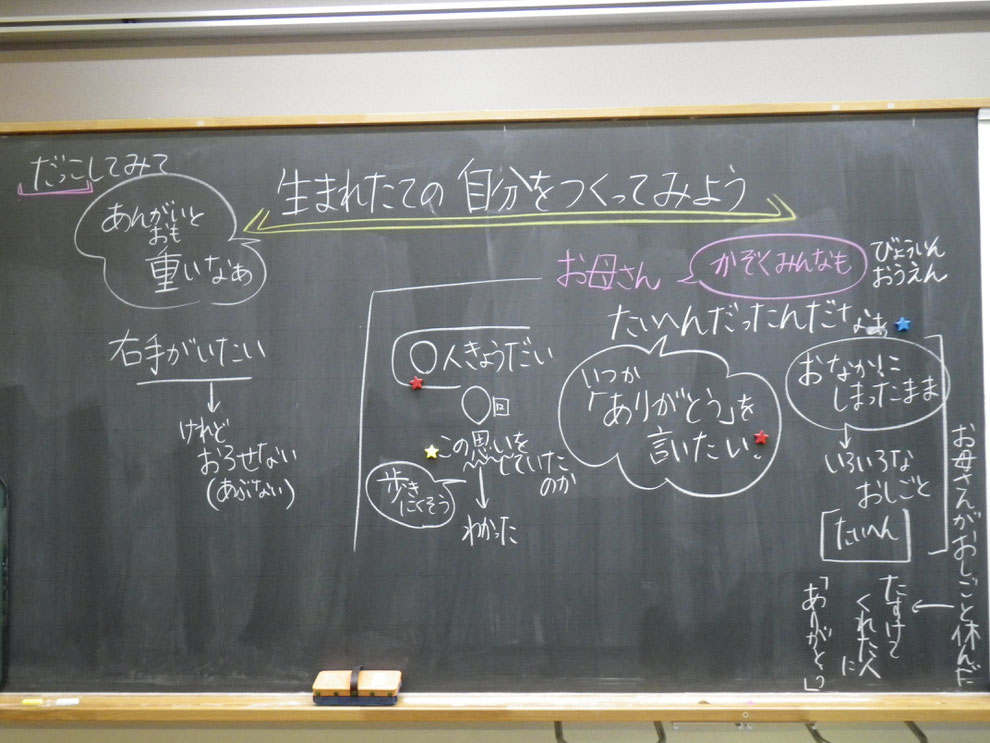 だっこしてみて
あんがいと
おも
重いなぁ
右手がいたい
↓
けれど
おろせない
(あぶない)
生まれたての自分をつくってみよう
お母さん
かぞくみんなも
びょういん
おうえん
たいへんだったんだなぁ
○人きょうだい
○回
この思いを
していたのか
↓
わかった
歩き
にくそう
いつか
「ありがとう」を
言いたい
おなかに
しまったまま
↓
いろいろな
おしごと
たいへん
お母さんがおしごと休んだ
←
たすけて
くれた人に
「ありがとう」